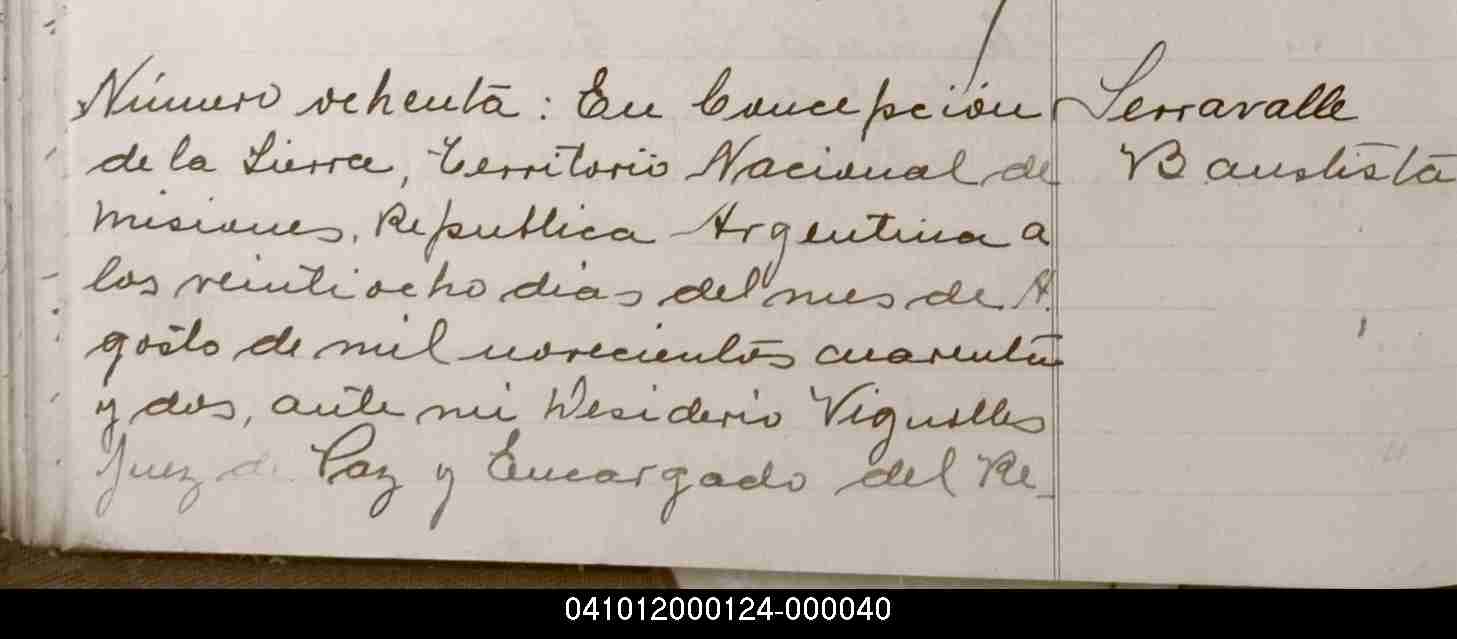 Número ochenta: En Concepción
de la Sierra, Territorio Nacional de
Misiones, Republica Argentina a
los veintiocho dias del mes de A
gosto de mil novecientos cuarenta
y dos, ante mi Desiderio Viguolles
Juez de Paz y Encargado del Re_
Serravalle
Baustista
041012000124-000040